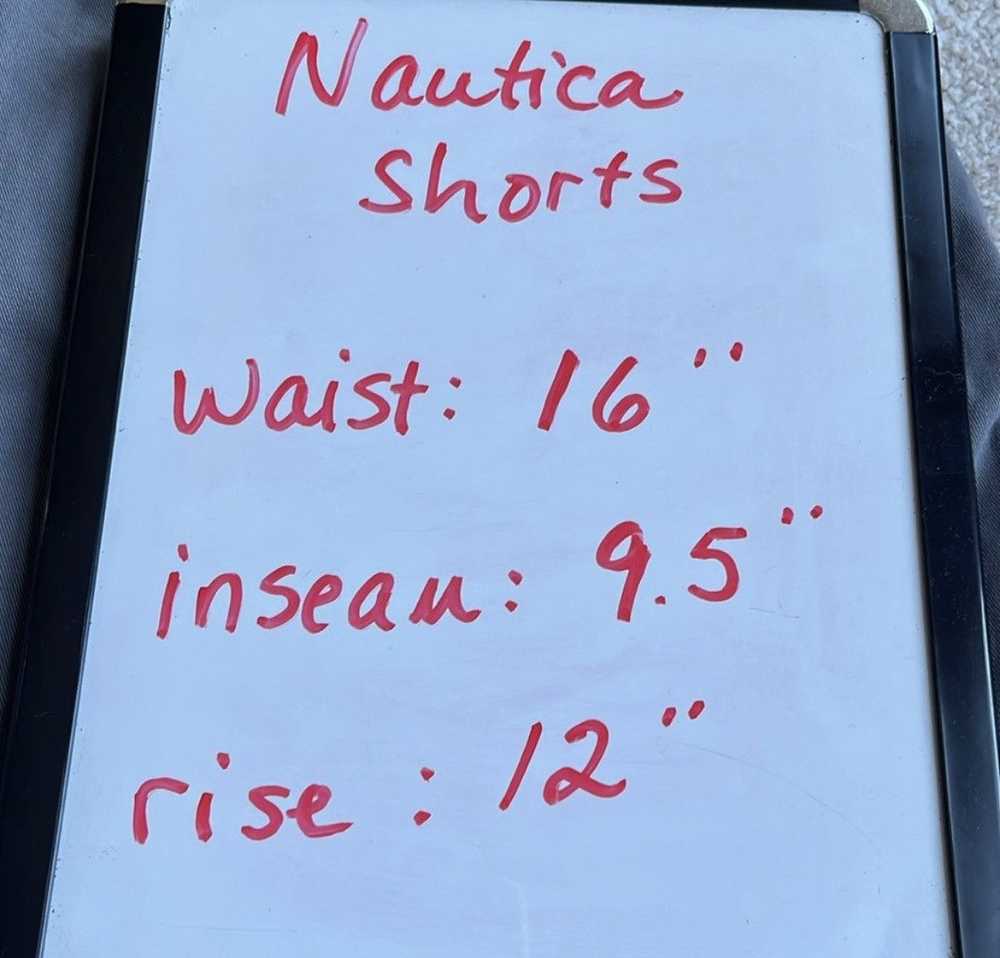 Nautica
Shorts
Waist: 16"
inseam: 9.5"
rise: 12"